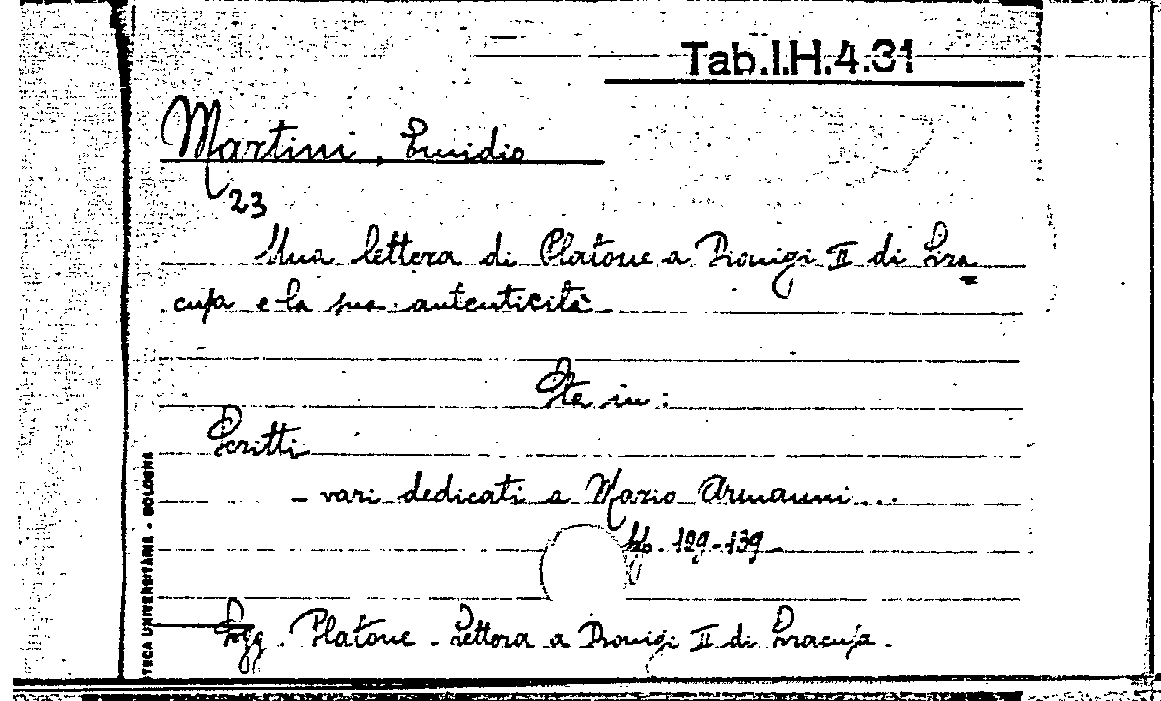 Tab.I.H.4.31
Martini, Emidio
23
Una lettera di Platone a Dionigi II di Sira
cusa e la sua autenticità.
Sta in:
Scritti
- vari dedicati a Mario Armanni...
pp. 129-139
Sgg. Platone - Lettera a Dionigi II di Siracusa.
TECA UNIVERSITARIA - BOLOGNA